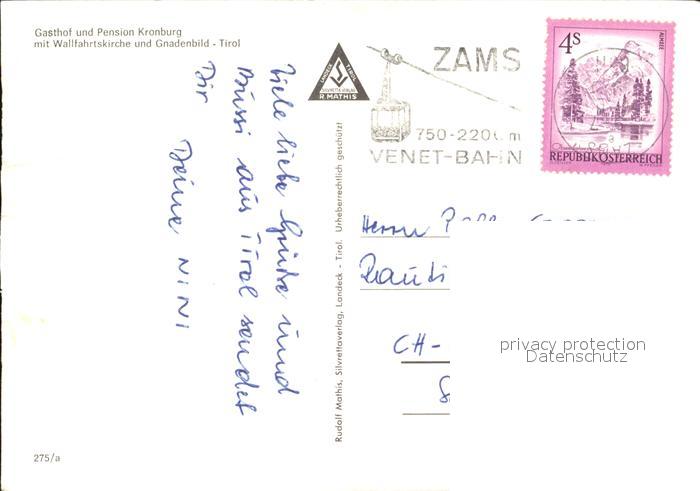 Gasthof und Pension Kronburg
mit Wallfahrtskirche und Gnadenbild - Tirol
Viele liebe Grüße und
Bussi aus Tirol sendet
Dir
Deine NINI
275/a
LANDECK TIROL
SILVRETTA-VERLAG
R. MATHIS
Rudolf Mathis, Silvrettaverlag, Landeck - Tirol. Urheberrechtlich geschützt!
ZAMS
750-2200 m
VENET-BAHN
4S
ALMSEE
REPUBLIK ÖSTERREICH
Herrn
CH-
privacy protection
Datenschutz